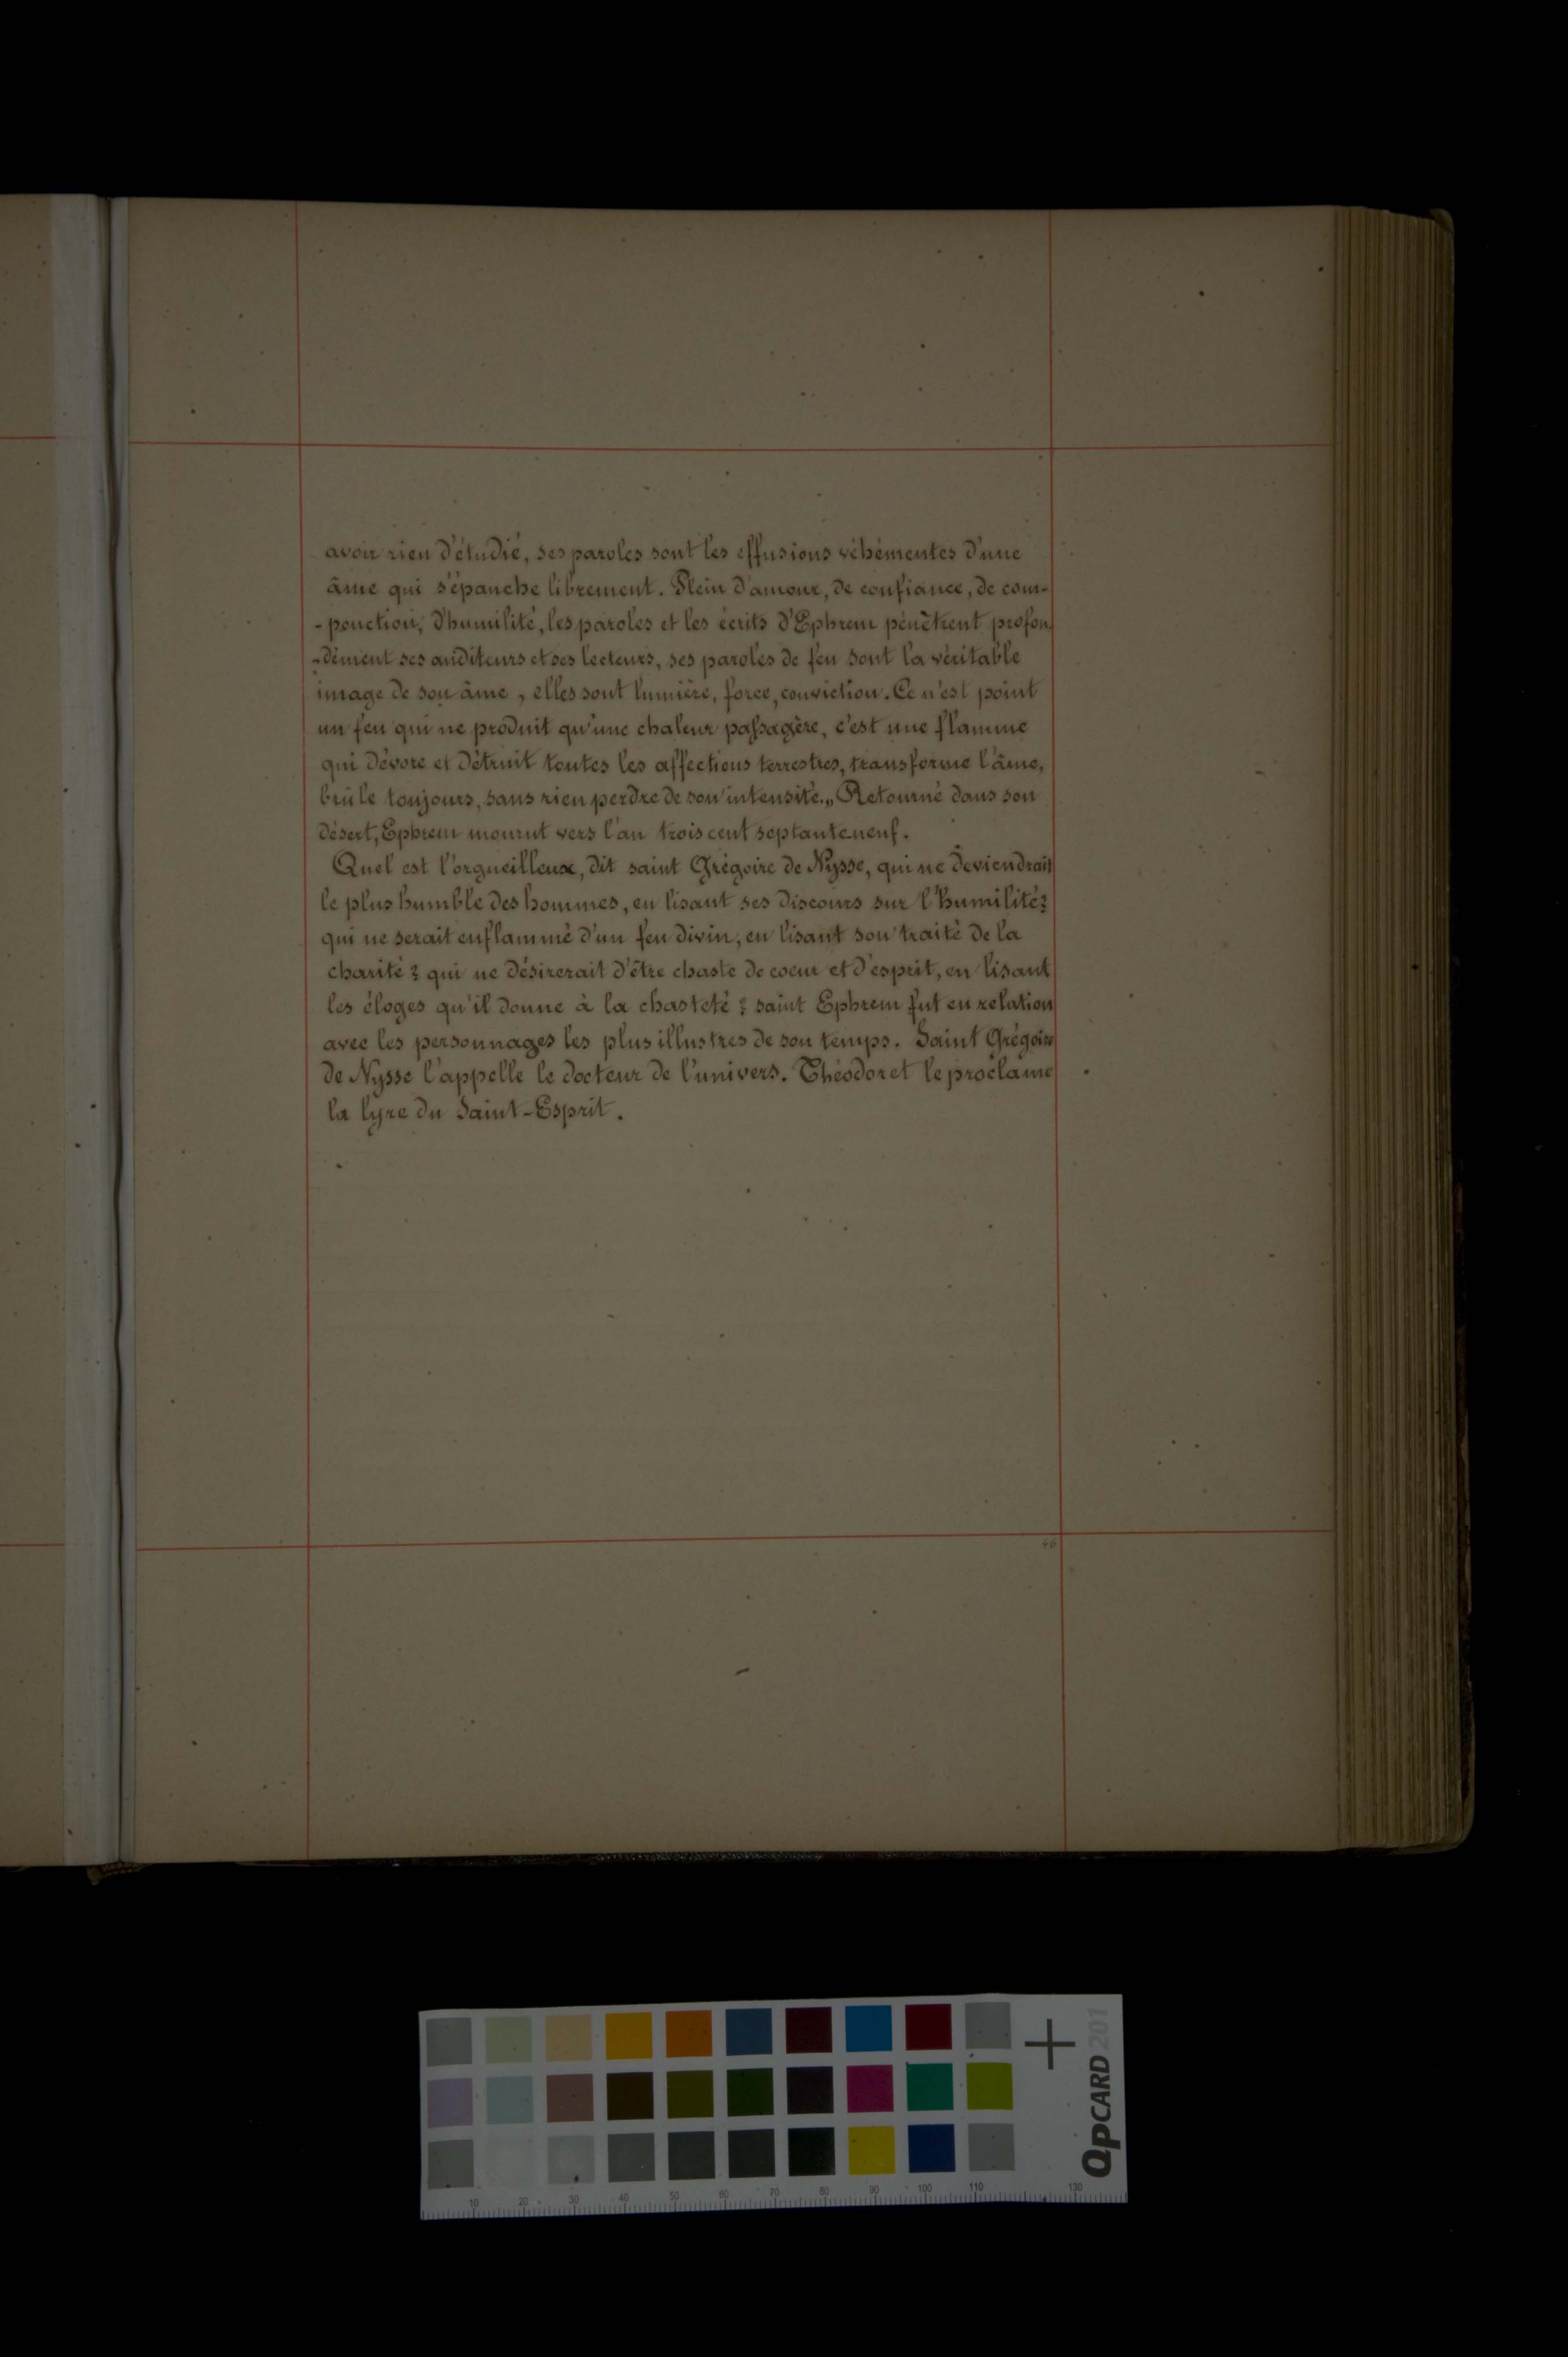 avoir rien d'étudié, ses paroles sont les effusions véhémentes d'une
âme qui s'épanche librement. Plein d'amour, de confiance, de com-
-ponction, d'humilité, les paroles et les écrits d'Ephrem pénètrent profon
-dément ses auditeurs et ses lecteurs, ses paroles de feu sont la véritable
image de son âme, elles sont lumière, force, conviction. Ce n'est point
un feu qui ne produit qu'une chaleur passagère, c'est une flamme
qui dévore et détruit toutes les affections terrestres, transforme l'âme,
brûle toujours, sans rien perdre de son intensité.„ Retourné dans son
désert, Ephrem mourut vers l'an trois cent septante-neuf.
Quel est l'orgueilleux, dit saint Grégoire de Nysse, qui ne deviendrait
le plus humble des hommes, en lisant ses discours sur l'humilité?
qui ne serait enflammé d'un feu divin, en lisant son traité de la
charité? qui ne désirerait d'être chaste de coeur et d'esprit, en lisant
les éloges qu'il donne à la chasteté? saint Ephrem fut en relation
avec les personnages les plus illustres de son temps. Saint Grégoire
de Nysse l'appelle le docteur de l'univers. Théodoret le proclame
la lyre du Saint-Esprit.
46
QPCARD 201
10 20 30 40 50 60 70 80 90 100 110 130